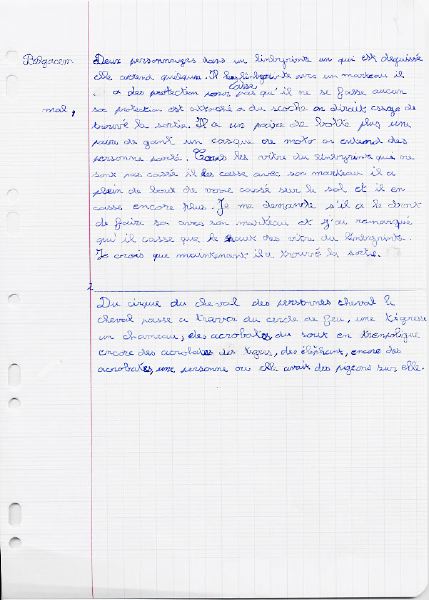 Belgacem
mal,
Deux personnages dans un linbyrinte un qui est deguisée
elle attend quelqun. Il linbyrinte avec un marteau il
casse
a des protection pour pas qu'il ne se fasse aucun
sa protection est attaché a du scoche on dirait
trouvé la sortie. Il a un paire de botte plus une
paire de gant un casque de moto on entend des
personne parlé. Tous les vitre du linbyrinte que ne
sont pas cassé il les casse avec son marteau il a
plein de bout de verre cassé sur le sol et il en
casse encore plus. Je me demande s'il a le droit
de faire sa avec son marteau et j'ai remarqué
qu'il casse que le haut des vitre du linbyrinte.
Je crois que maintenant il a trouvé la sortie.
2
Du cirque du cheval des personnes cheval le
cheval passe a travers du cercle de feu, une tigresse
un chameau, des acrobates du saut en trempoligne
encore des acrobates des tigres, des éléphant, encore des
acrobates, une personne ou elle avait des pigeons sur elle.